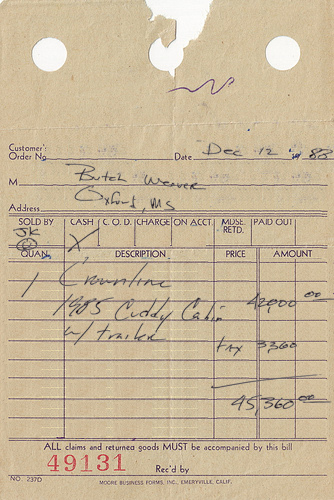 Customer's
Order No. Date Dec 12 19 88
M Butch Weaver
Address Oxford, MS
SOLD BY CASH C.O.D. CHARGE ON ACCT. MDSE. RETD. PAID OUT
JK X
QUAN. DESCRIPTION PRICE AMOUNT
1 Crownline
1985 Cuddy Cabin 42,000 00
w/ trailer tax 3360
45,360 00
ALL claims and returned goods MUST be accompanied by this bill
49131 Rec'd by
NO. 237D MOORE BUSINESS FORMS, INC., EMERYVILLE, CALIF.